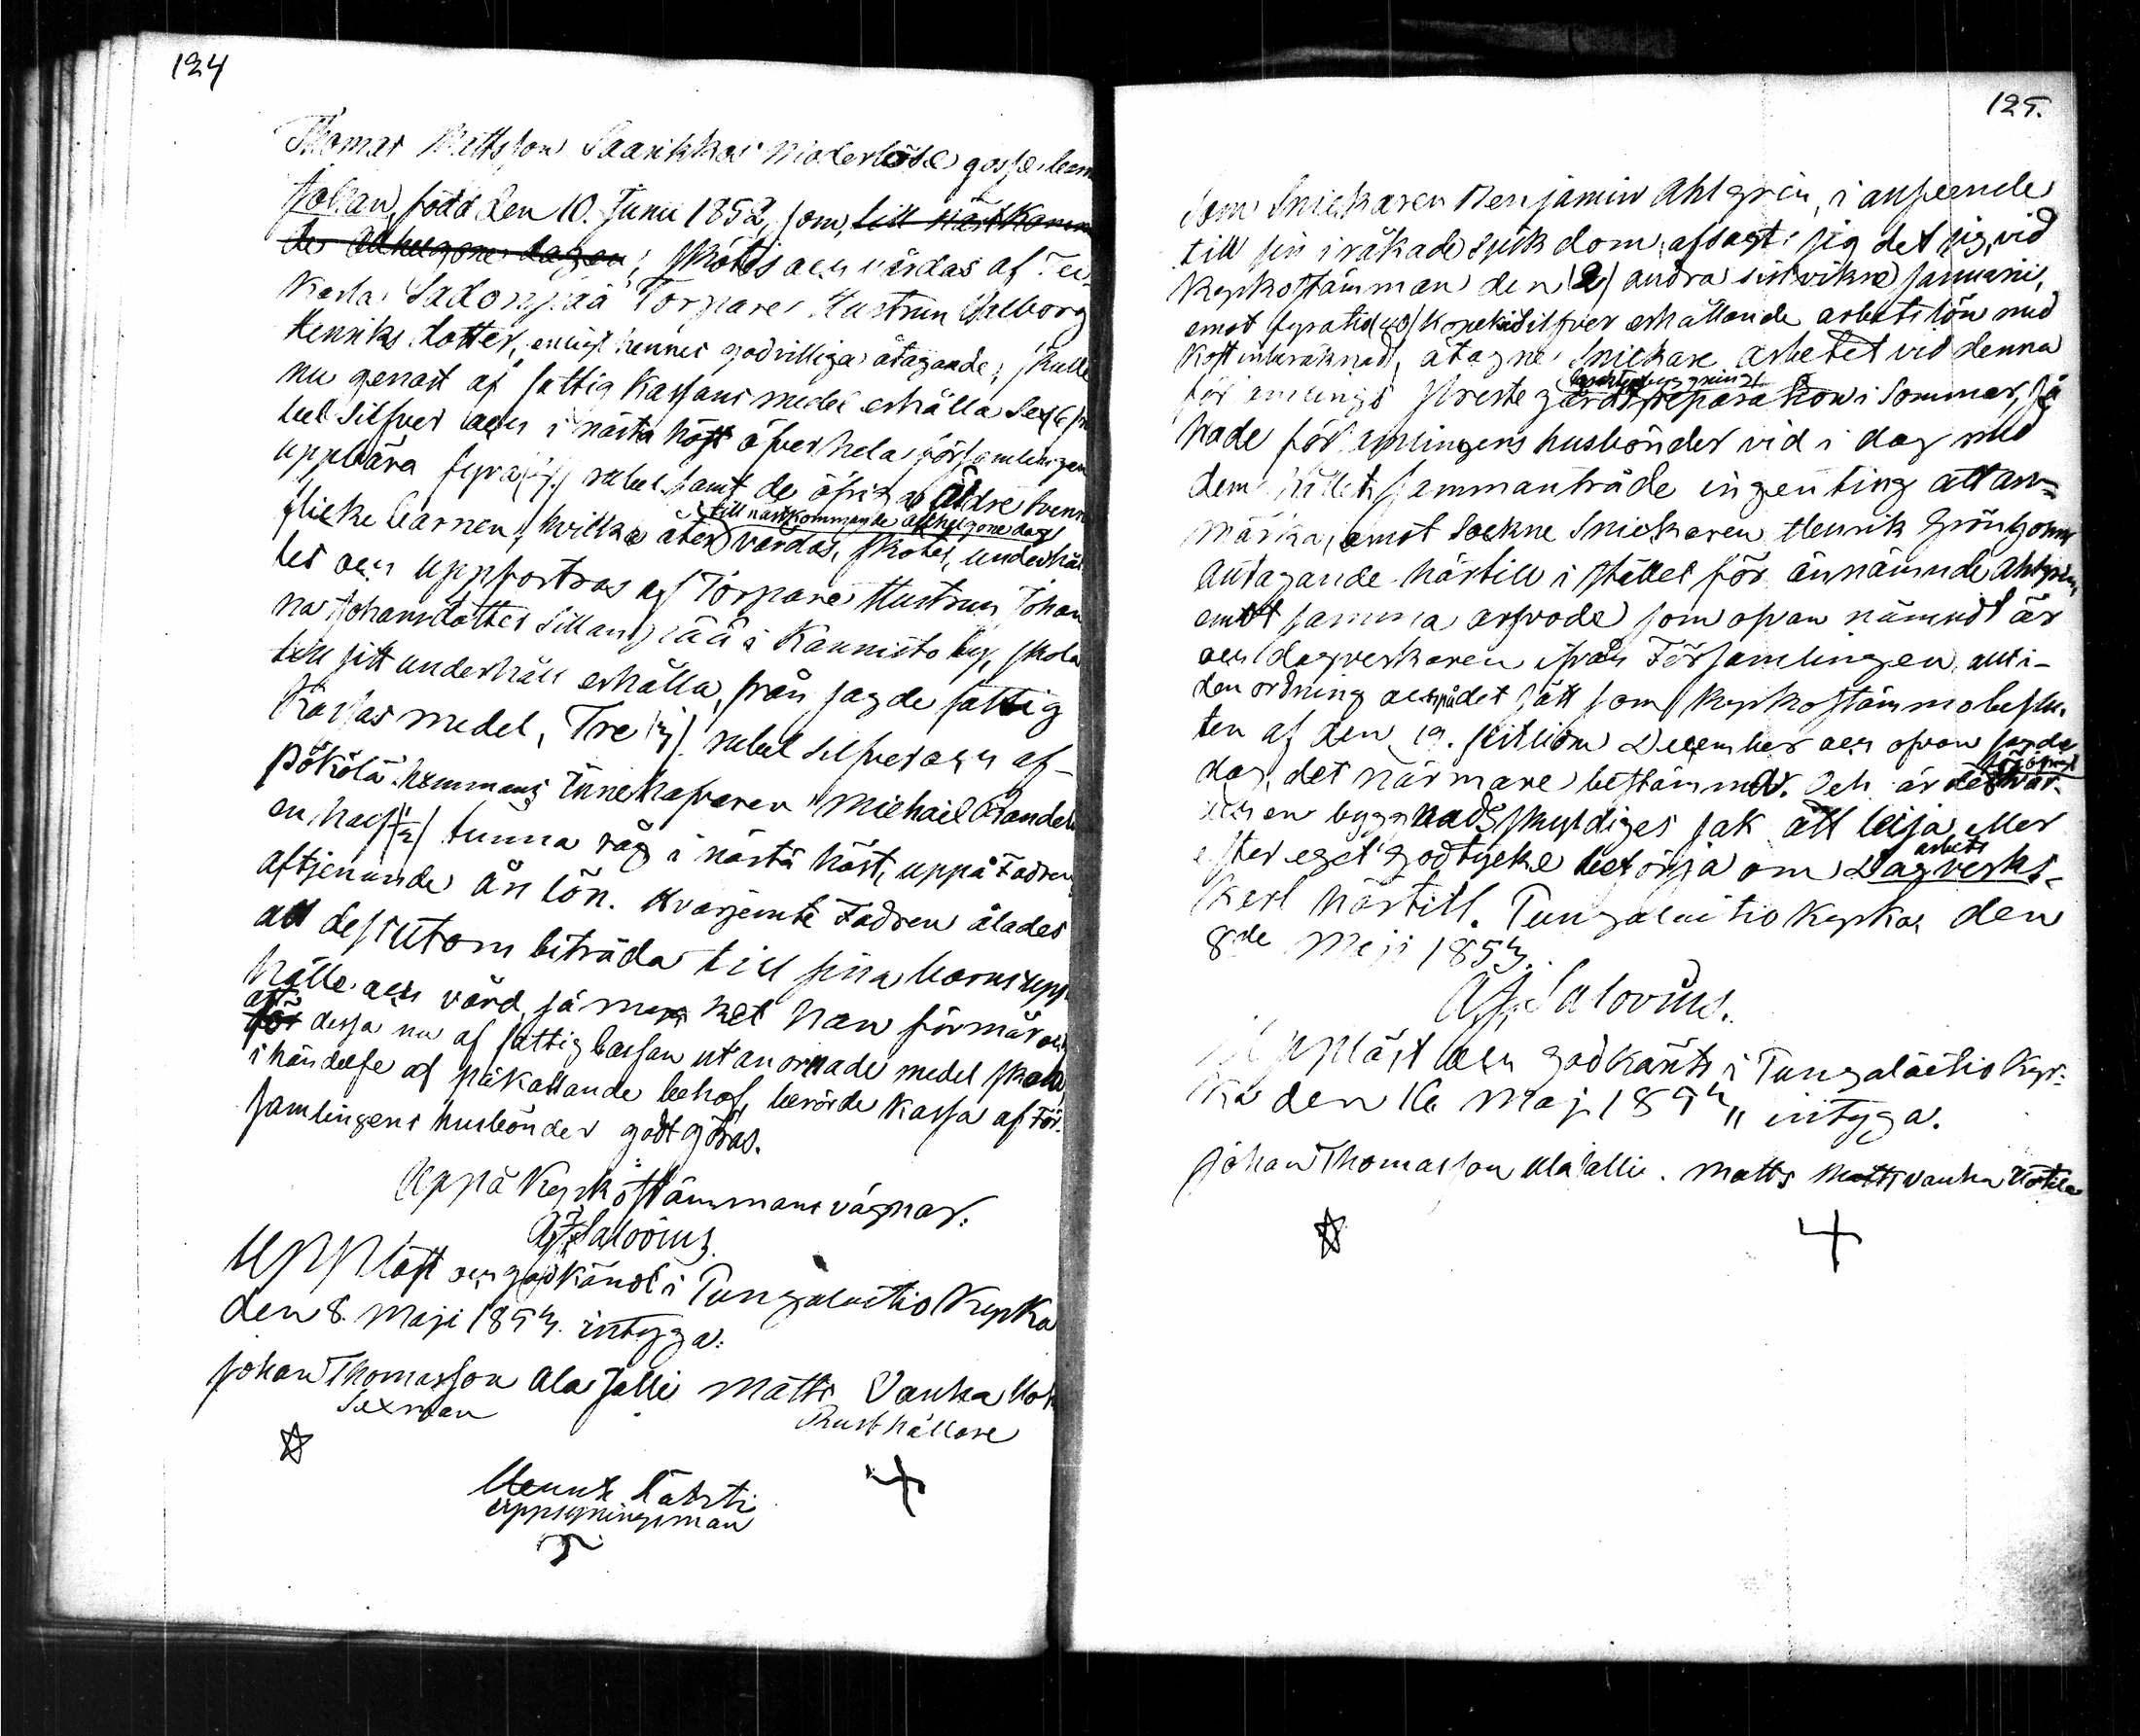 124
Thomas Mattsson Saarikkos moderlösa gosse barn
Johan, född den 10. Junii 1852, som, till nästkomm
de Allhelgone dagen, skötes och vårdas af Teu-
Kada Sadonpää Torpare Hustrun Walborg
Henriksdotter, enligt hennes godvilliga åtagande, skulle
nu genast af fattig Kassans medel erhålla Sex /6/ ru
bel Silfver och i nästa höst öfver hela församlingen
uppbära fyra /4/ rubel samt de öfriga äldre tvenne
till nästkommande allhelgone dag
flicke barnen, hvilka åter vårdas, skötes, underhål
les och uppfostras af Torpare Hustrun Johan
na Johansdotter Sillanpää i Kannisto by, skola
till sitt underhåll erhålla, från sagde fattig
Kassas medel, Tre /3/ rubel silfver och af
Pökölä hemmans innehafvaren Michael
en half /1/2/ tunna råg i nästa höst, uppå Fadren
aftjenande års lön. Hvarjemte Fadren ålades
att dessutom biträda till sina barns upp
hälle och vård, så mycket han förmår och
att
för dessa nu af fattigkassan utanornade medel skola,
i händelse af påkallande behof, berörde Kassa af För-
samlingens husbönder godtgöras.
Uppå Kyrkostämmans vägnar:
A. F. Salovius.
Uppläst och godkändt i Pungalaitio Kyrka
den 8. Maji 1853. intyga:
Johan Thomasson Ala Jalli Matts Vanha
Sexman Rusthållare
Henrik Lähti
Uppsyningsman
125.
Som Snickaren Benjamin Ahlgrén, i anseende
till sin iråkade sjukdom, afsagt sig det sig vid
Kyrkostämman den /2/ andra sistvikne Januarii,
emot fyratio /40/ Kopek silfver erhållande arbetslön med
Kost inberäknad, åtagne Snickare arbetet vid denna
församlings Preste gårds reparation i Sommar, så
hade församlingens husbönder vid i dag med
dem hållet sammanträde ingenting att an-
märka, emot Sockne Snickaren Henrik Grönholms
Antagande härtill i stället för ännämnde Ahlgrén,
emot samma arfvode som ofvan nämndt är
och dagverkaren ifrån Församlingen, allt i
den ordning och på det sätt som Kyrkostämmobeslu-
ten af den 19. sistliden December och ofvan sagde
dag, det närmare bestämmer. Och är det hvar
och en byggnadsskyldiges sak att leija eller
efter eget godtycke besörja om Dagverks-
arbets
Karl härtill. Pungalaitio Kyrka, den
8de Maji 1853.
A. F. Salovius.
Uppläst och godkändt i Pungalaitio Kyr-
ka den 16 Maj 1853, intyga.
Johan Thomasson Ala Jalli. Matts Matts Vanha Uotila